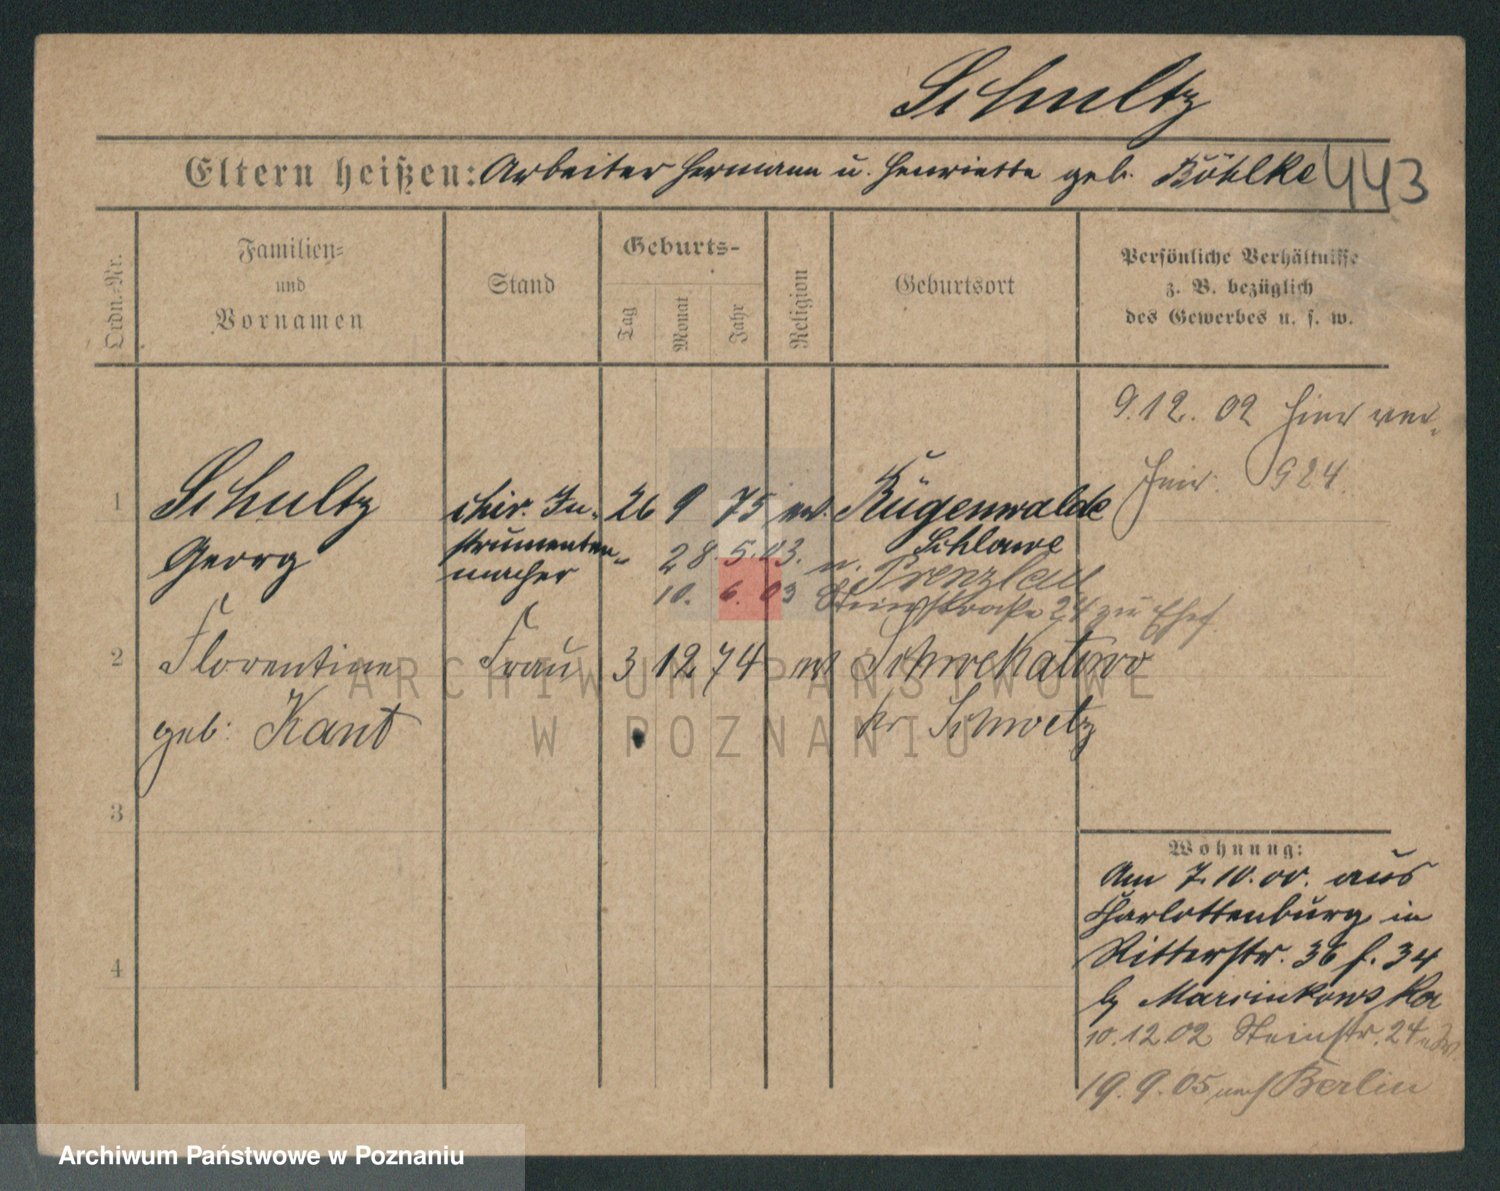 Schultz
Eltern heißen: Arbeiter Hermann u. Henriette geb. Köhlke 443
Ordn.-Nr.
Familien-
und
Vornamen
Stand
Geburts-
Tag
Monat
Jahr
Religion
Geburtsort
Persönliche Verhältnisse
z. B. bezüglich
des Gewerbes u. s. w.
9.12. 02 hier ver-
heir. 924
1 Schultz chir. In- 26 9 75 ev. Rügenwalde
Georg strumenten- Schlawe
macher 28. 5. 03. n. Prenzlau
10. 6. 03 Steinstraße 24 zu Ehef.
2 Florentine Frau 3 12 74 ev Schwekatowo
geb: Kant kr Schwetz
3
4
Wohnung:
Am 7.10.00. aus
Charlottenburg in
Ritterstr. 36 f. 34
b/ Marcinkowska
10.12.02 Steinstr. 24
19.9.05 nach Berlin
ARCHIWUM PAŃSTWOWE
W POZNANIU
Archiwum Państwowe w Poznaniu